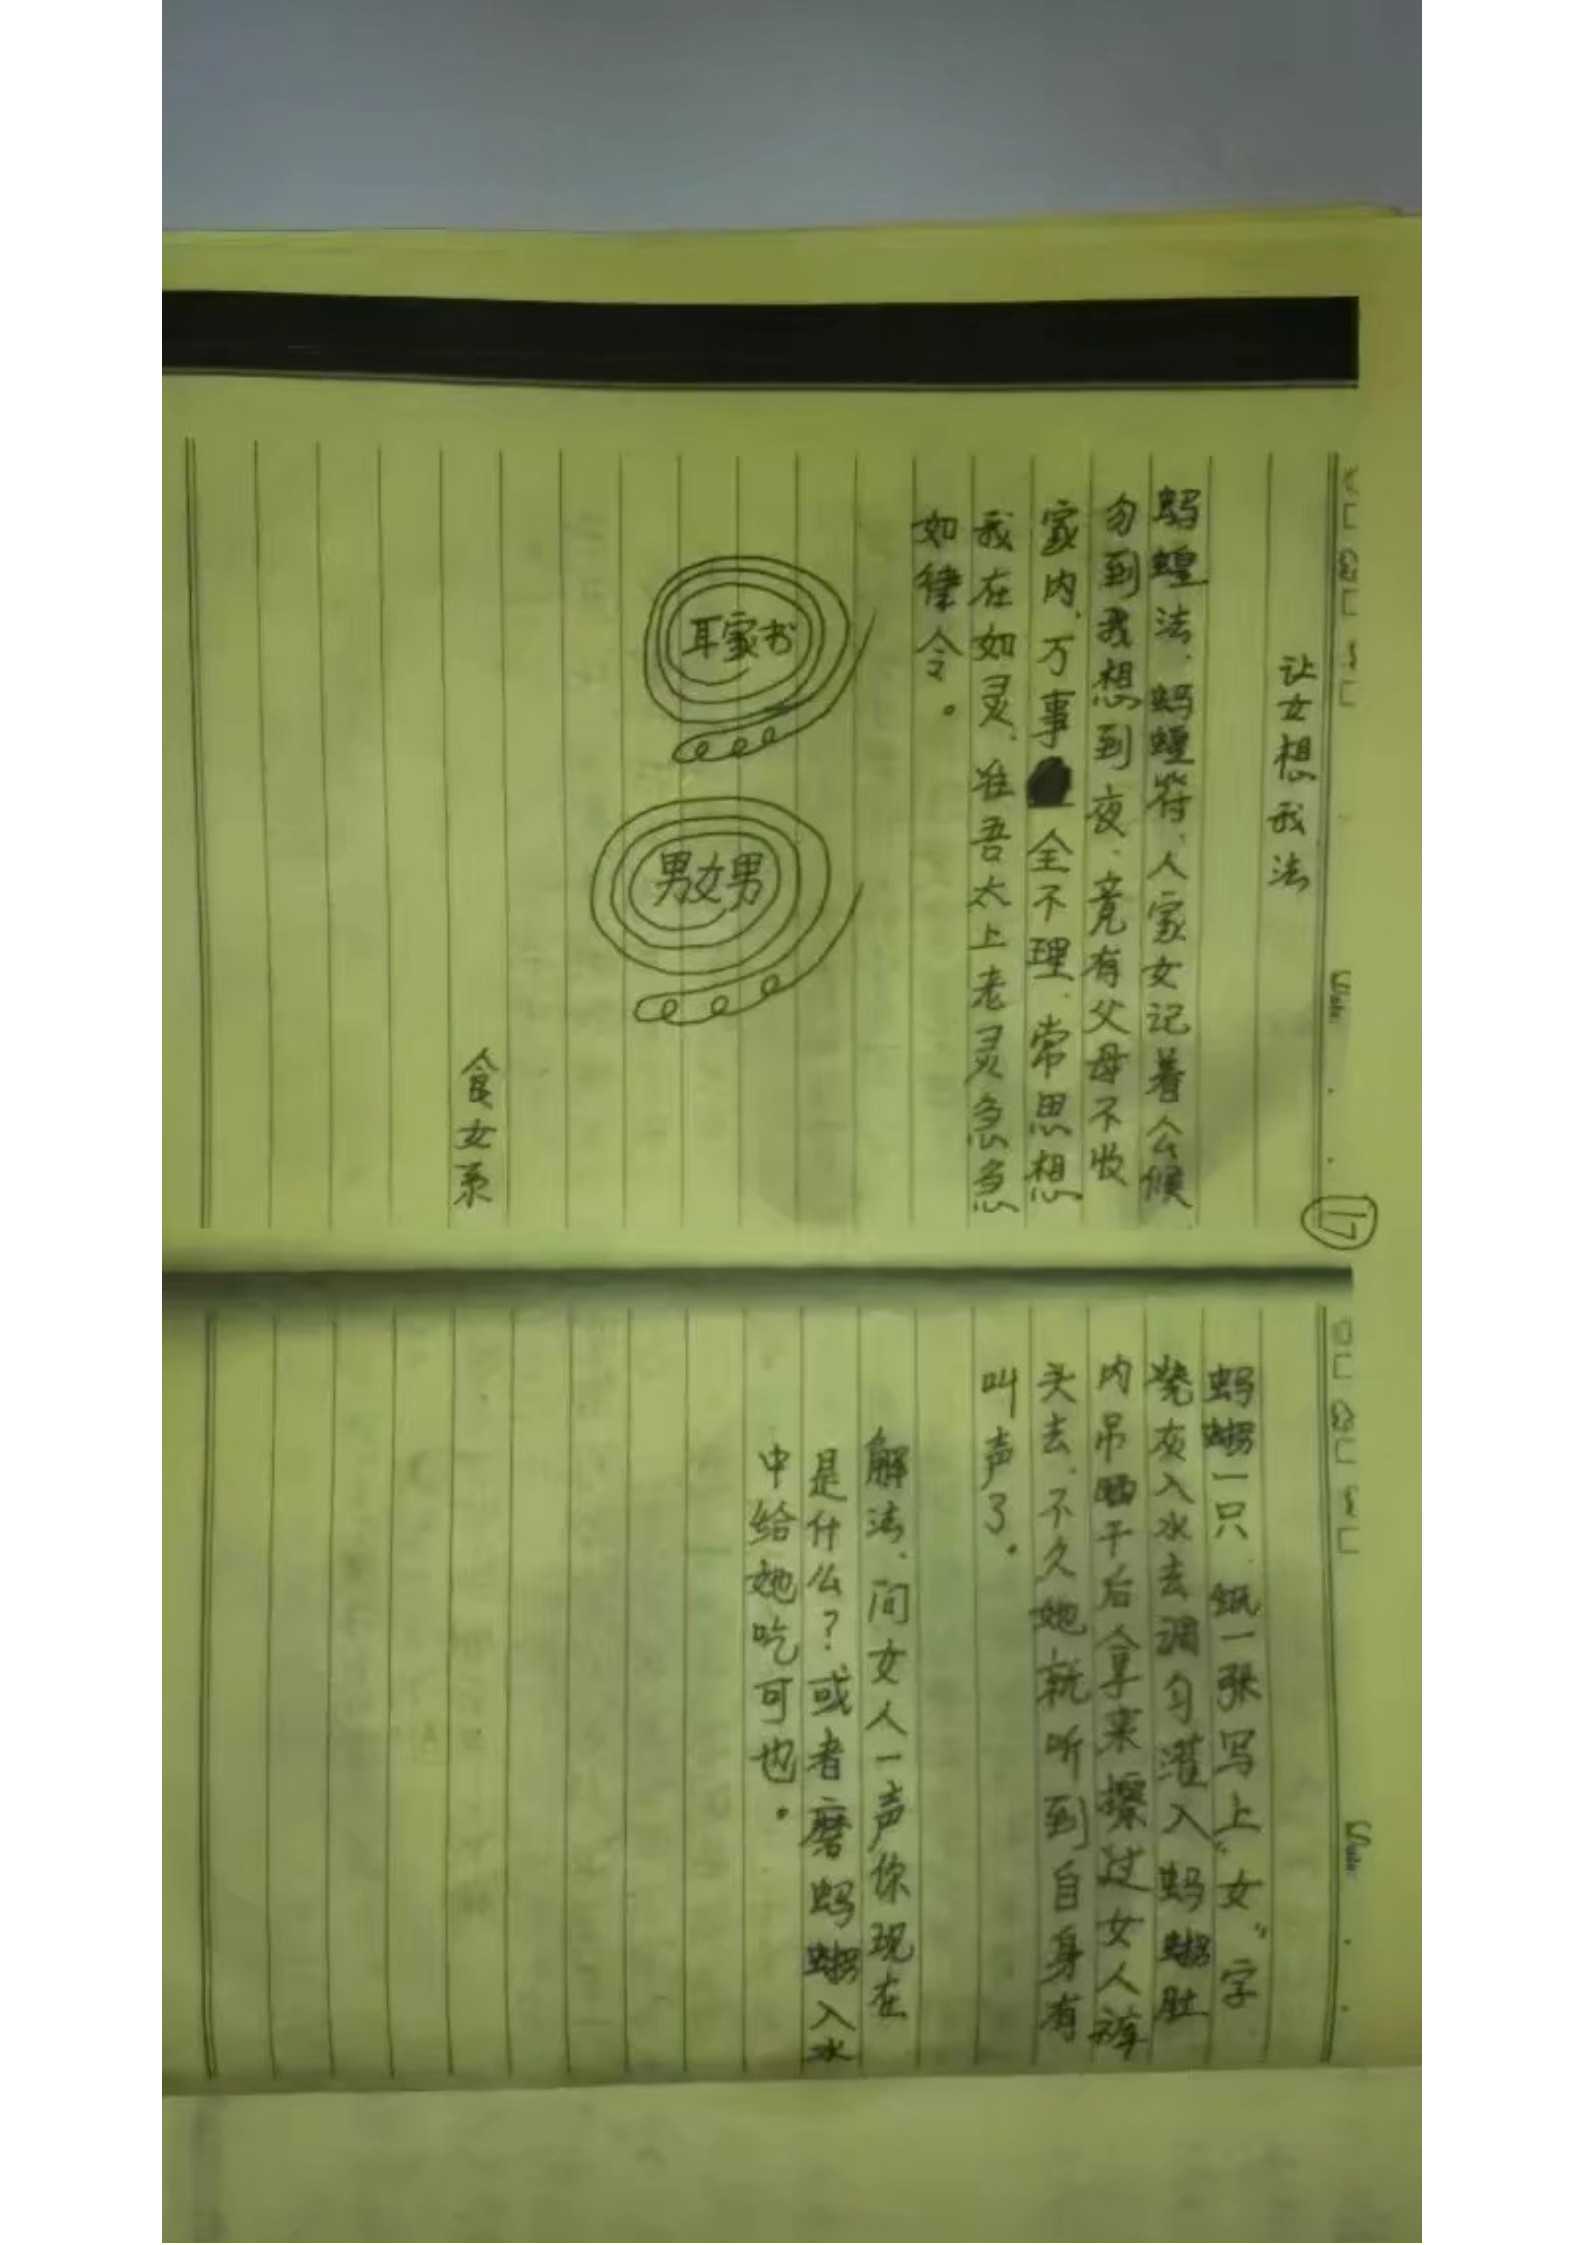 让女想我法
蚂蝗法、蚂蝗符、人家女记着么候
勿到我想到夜、竟有父母不收
家内、万事全不理、常思想
我在如灵、准吾太上老灵急急
如律令。
耳家书
男女男
食女系
17
蚂𧊅一只、纸一张写上“女”字
烧灰入水去调匀灌入蚂𧊅肚
内吊晒干后拿来擦过女人裤
头去、不久她就听到自身有
叫声了。
解法、问女人一声你现在
是什么？或者磨蚂𧊅入水
中给她吃可也。